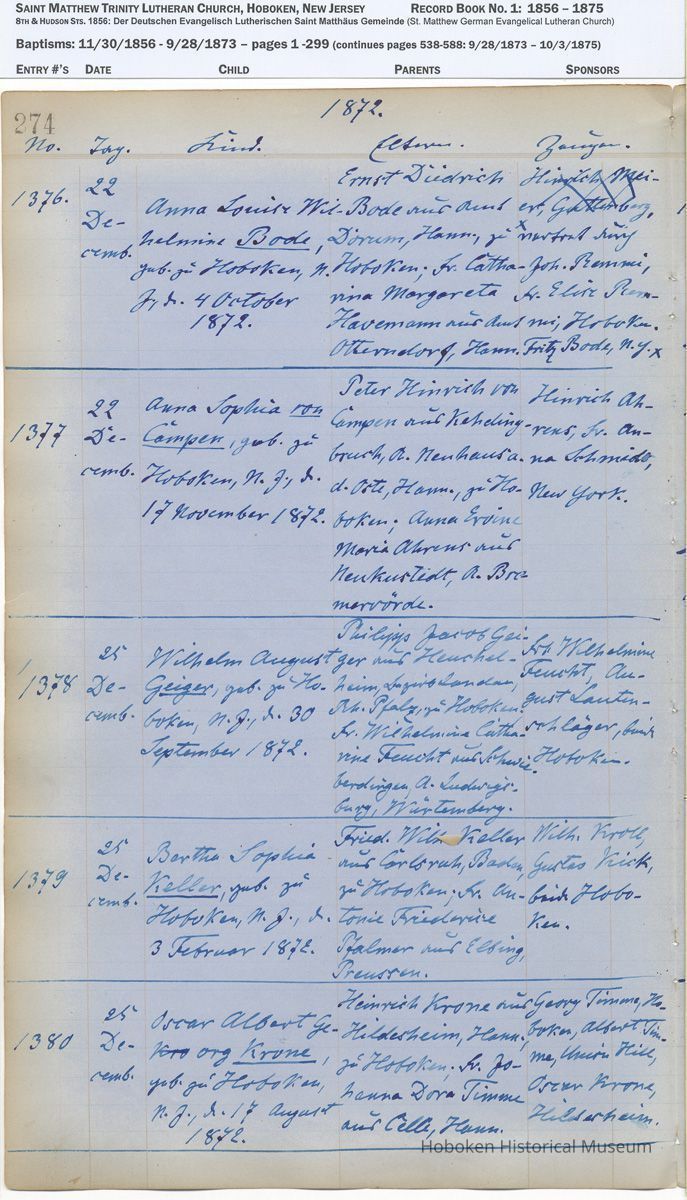 SAINT MATTHEW TRINITY LUTHERAN CHURCH, HOBOKEN, NEW JERSEY RECORD BOOK NO. 1: 1856 – 1875
8TH & HUDSON STS. 1856: Der Deutschen Evangelisch Lutherischen Saint Matthäus Gemeinde (St. Matthew German Evangelical Lutheran Church)
Baptisms: 11/30/1856 - 9/28/1873 – pages 1 -299 (continues pages 538-588: 9/28/1873 – 10/3/1875)
ENTRY #'S DATE CHILD PARENTS SPONSORS
1872.
274
No. Tag. Kind. Eltern. Zeugen.
1376.
22
De-
cemb.
Anna Louise Wil-
helmine Bode,
geb. zu Hoboken, N.
J., d. 4 October
1872.
Ernst Diedrich
Bode aus Amt
Dorum, Hann., zu
Hoboken; Fr. Catha-
rina Margareta
Havemann aus Amt
Otterndorf, Hann.
Hinrich Mei-
er, Guttenberg,
x vertret durch
Joh. Remmi,
Fr. Elise Rem-
mi, Hoboken.
Fritz Bode, N.Y. x
1377
22
De-
cemb.
Anna Sophia von
Campen, geb. zu
Hoboken, N. J., d.
17 November 1872.
Peter Hinrich von
Campen aus Kehding-
bruch, A. Neuhaus a.
d. Oste, Hann., zu Ho-
boken; Anna
Maria Ahrens aus
A. Bre-
mervörde.
Hinrich Ah-
rens, Fr. An-
na Schmidt,
New York.
1378
25
De-
cemb.
Wilhelm August
Geiger, geb. zu Ho-
boken, N. J., d. 30
September 1872.
Philipp Jacob Gei-
ger aus Heuchel-
heim, Landau,
Rh. Pfalz, zu Hoboken
Fr. Wilhelmina Catha-
rine Feucht aus Schwie-
berdingen, A. Ludwigs-
burg, Würtemberg.
Wilhelmine
Feucht, Au-
gust Lauten-
schläger, beide
Hoboken.
1379
25
De-
cemb.
Bertha Sophia
Keller, geb. zu
Hoboken, N. J., d.
3 Februar 1872.
Fried. Wilh Keller
aus Carlsruh, Baden,
zu Hoboken; Fr. An-
tonie Friederise
Pfalmer aus Elbing,
Preussen.
Wilh. Kroll,
Gustav Kick,
beide Hobo-
ken.
1380
25
De-
cemb.
Oscar Albert Ge-
Kro org Krone,
geb. zu Hoboken,
N. J., d. 17 August
1872.
Heinrich Krone aus
Hildesheim, Hann.,
zu Hoboken. Fr. Jo-
hanna Dora Timme
aus Celle, Hann.
Georg Timme, Ho-
boken, Albert Tim-
me, Union Hill,
Oscar Krone,
Hildesheim.
Hoboken Historical Museum